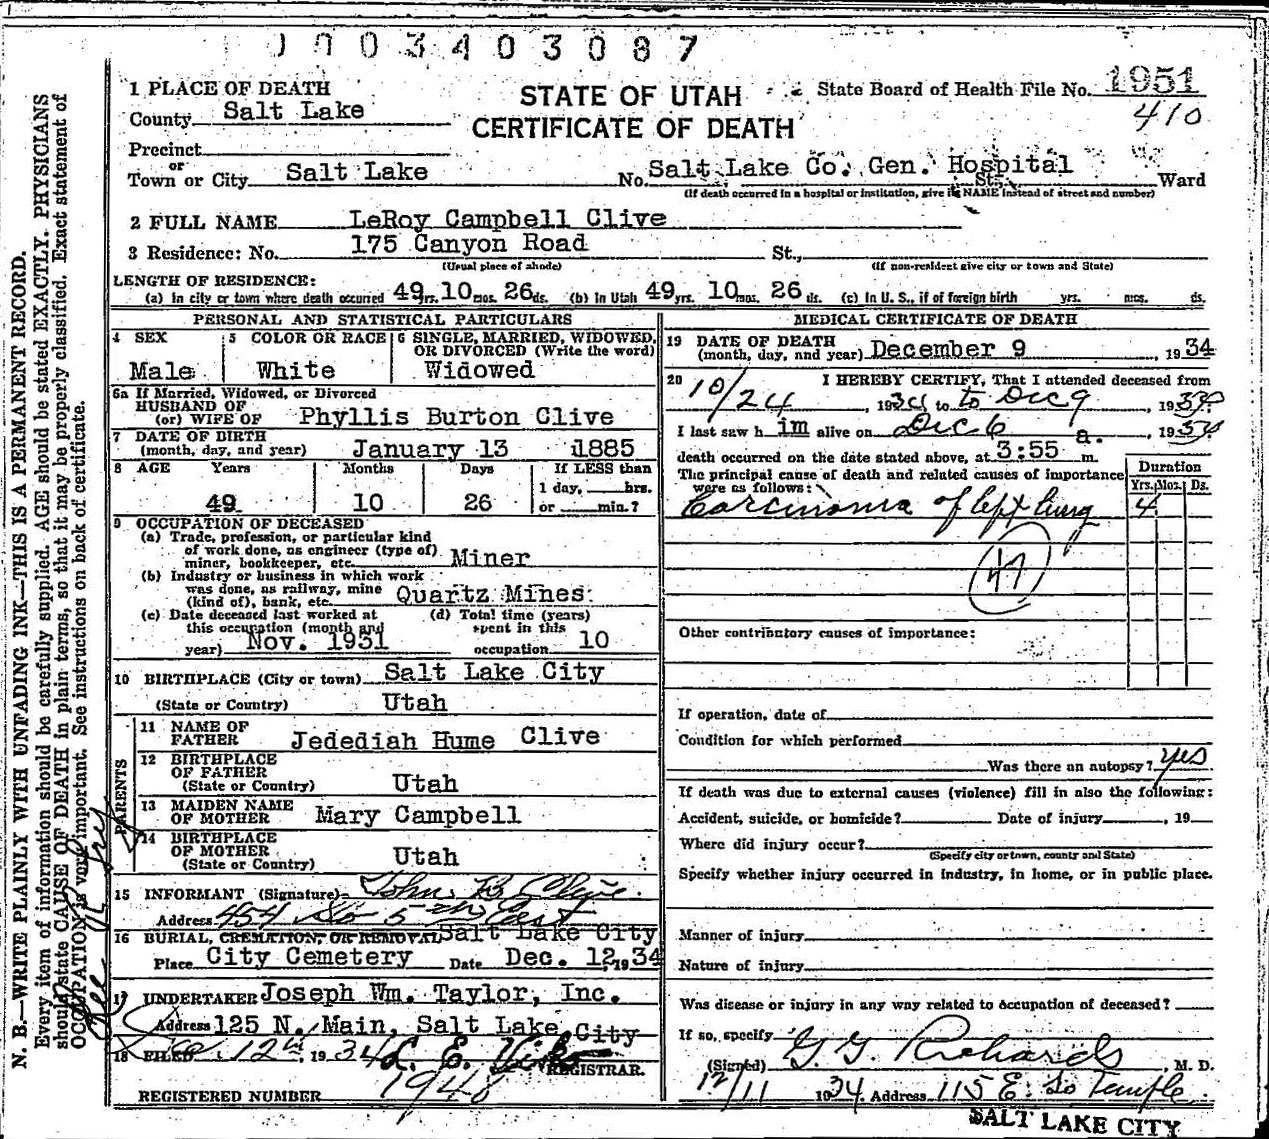 0003403087
1 PLACE OF DEATH
STATE OF UTAH
State Board of Health File No. 1951
County Salt Lake
CERTIFICATE OF DEATH
410
Precinct
or
Town or City Salt Lake No. Salt Lake Co. Gen. Hospital St., Ward
(If death occurred in a hospital or institution, give its NAME instead of street and number)
2 FULL NAME LeRoy Campbell Clive
3 Residence: No. 175 Canyon Road St.,
(Usual place of abode) (If non-resident give city or town and State)
LENGTH OF RESIDENCE:
(a) In city or town where death occurred 49 yrs. 10 mos. 26 ds. (b) In Utah 49 yrs. 10 mos. 26 ds. (c) In U. S., if of foreign birth yrs. mos. ds.
PERSONAL AND STATISTICAL PARTICULARS
4 SEX 5 COLOR OR RACE 6 SINGLE, MARRIED, WIDOWED, OR DIVORCED (Write the word)
Male White Widowed
6a If Married, Widowed, or Divorced
HUSBAND OF
(or) WIFE OF Phyllis Burton Clive
7 DATE OF BIRTH
(month, day, and year) January 13 1885
8 AGE Years Months Days If LESS than
1 day, hrs.
49 10 26 or min.?
9 OCCUPATION OF DECEASED
(a) Trade, profession, or particular kind
of work done, as engineer (type of)
miner, bookkeeper, etc. Miner
(b) Industry or business in which work
was done, as railway, mine
(kind of), bank, etc. Quartz Mines
(c) Date deceased last worked at (d) Total time (years)
this occupation (month and spent in this
year) Nov. 1931 occupation 10
10 BIRTHPLACE (City or town) Salt Lake City
(State or Country) Utah
PARENTS
11 NAME OF
FATHER Jedediah Hume Clive
12 BIRTHPLACE
OF FATHER
(State or Country) Utah
13 MAIDEN NAME
OF MOTHER Mary Campbell
14 BIRTHPLACE
OF MOTHER
(State or Country) Utah
15 INFORMANT (Signature) John B Clive.
Address 454 So 5th East
16 BURIAL, CREMATION, OR REMOVAL Salt Lake City
Place City Cemetery Date Dec. 12, 1934
17 UNDERTAKER Joseph Wm. Taylor, Inc.
Address 125 N. Main, Salt Lake City
18 FILED Dec. 12th, 1934 L. E.
REGISTRAR.
REGISTERED NUMBER 1948
MEDICAL CERTIFICATE OF DEATH
19 DATE OF DEATH
(month, day, and year) December 9, 1934
20 I HEREBY CERTIFY, That I attended deceased from
10/24, 1934 to to Dec 9, 1934
I last saw h im alive on Dec 6, 1934
death occurred on the date stated above, at 3:55 a. m.
The principal cause of death and related causes of importance
were as follows:
Duration
Yrs. Mos. Ds.
Carcinoma of left lung 4
47
Other contributory causes of importance:
If operation, date of
Condition for which performed
Was there an autopsy? yes
If death was due to external causes (violence) fill in also the following:
Accident, suicide, or homicide? Date of injury, 19
Where did injury occur?
(Specify city or town, county and State)
Specify whether injury occurred in industry, in home, or in public place.
Manner of injury
Nature of injury
Was disease or injury in any way related to occupation of deceased?
If so, specify
(Signed) G. G. Richards, M. D.
12/11 1934 Address 115 E. So Temple
SALT LAKE CITY
N. B.—WRITE PLAINLY WITH UNFADING INK—THIS IS A PERMANENT RECORD.
Every item of information should be carefully supplied. AGE should be stated EXACTLY. PHYSICIANS
should state CAUSE OF DEATH in plain terms, so that it may be properly classified. Exact statement of
OCCUPATION is very important. See instructions on back of certificate.